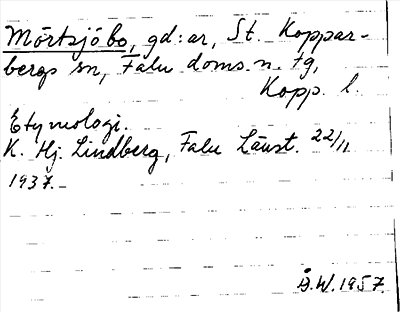 Mörtsjöbo, gd:ar, St. Koppar-
bergs sn, Falu doms.n. tg,
Kopp. l.
Etymologi.
K. Hj. Lindberg, Falu Länst. 22/11
1937.
Å.W.1957.